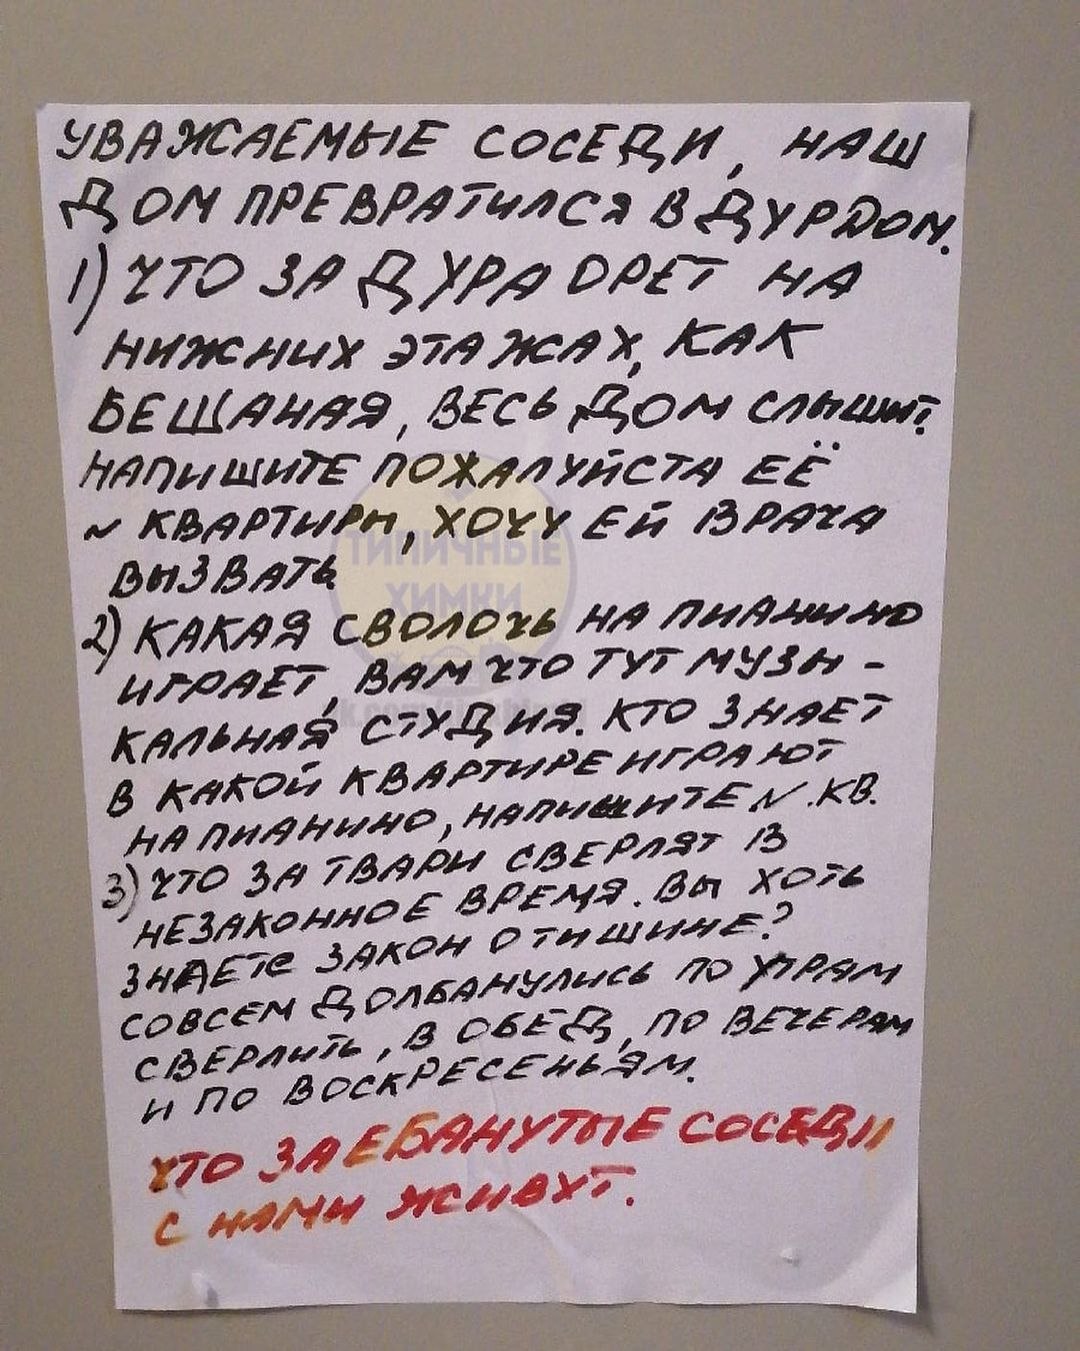 УВАЖАЕМЫЕ СОСЕДИ, НАШ
ДОМ ПРЕВРАТИЛСЯ В ДУРДОМ.
1) ЧТО ЗА ДУРА ОРЕТ НА
НИЖНИХ ЭТАЖАХ, КАК
БЕЩАНАЯ, ВЕСЬ ДОМ СЛЫШИТ.
НАПИШИТЕ ПОЖАЛУЙСТА ЕЁ
№ КВАРТИРЫ, ХОЧУ ЕЙ ВРАЧА
ВЫЗВАТЬ
2) КАКАЯ СВОЛОЧЬ НА ПИАНИНО
ИГРАЕТ, ВАМ ЧТО ТУТ МУЗЫ-
КАЛЬНАЯ СТУДИЯ. КТО ЗНАЕТ
В КАКОЙ КВАРТИРЕ ИГРАЮТ
НА ПИАНИНО, НАПИШИТЕ №.КВ.
3) ЧТО ЗА ТВАРИ СВЕРЛЯТ В
НЕЗАКОННОЕ ВРЕМЯ. ВЫ ХОТЬ
ЗНАЕТЕ ЗАКОН О ТИШИНЕ?
СОВСЕМ ДОЛБАНУЛИСЬ ПО УТРАМ
СВЕРЛИТЬ, В ОБЕД, ПО ВЕЧЕРАМ
И ПО ВОСКРЕСЕНЬЯМ.
ЧТО ЗАЕБАНУТЫЕ СОСЕДИ
С НАМИ ЖИВУТ.
ТИПИЧНЫЕ
ХИМКИ